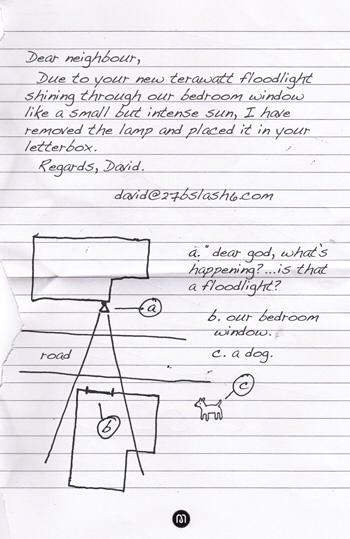 Dear neighbour,
Due to your new terawatt floodlight
shining through our bedroom window
like a small but intense sun, I have
removed the lamp and placed it in your
letterbox.
Regards, David.
david@27bslash6.com
a. "dear god, what's
happening?...is that
a floodlight?
b. our bedroom
window.
c. a dog.
a
road
c
b